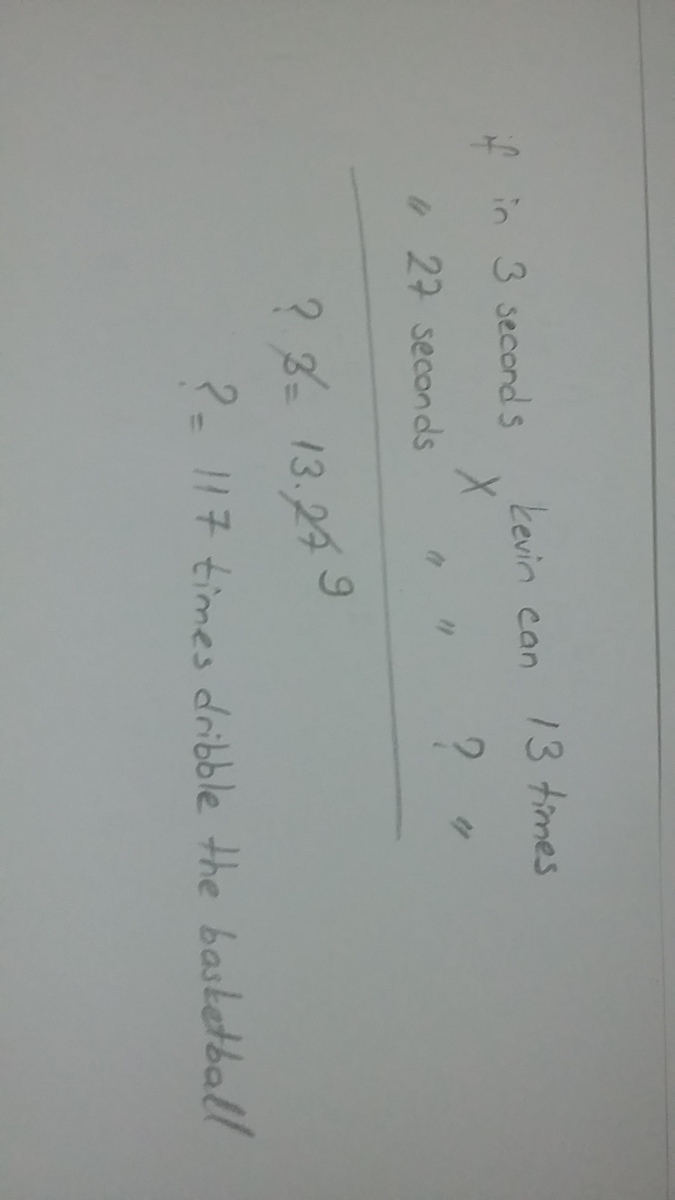 if in 3 seconds kevin can 13 times
" 27 seconds X " " ? "
? 3 = 13.27 9
? = 117 times dribble the basketball